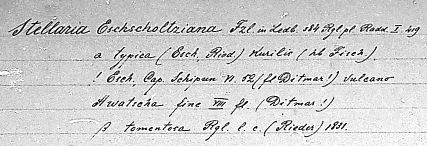 Stellaria Eschscholtziana Fzl. in Ledb. 384 Rgl pl. Radd. I. 419
α typica (Esch, Ried) Kurilis (hb Fisch).
! Esch. Cap. Schipun N. 52 (fl Ditmar!) vulcano
Awatscha fine VIII fl. (Ditmar!)
β tomentosa Rgl. l. c. (Rieder) 1831.